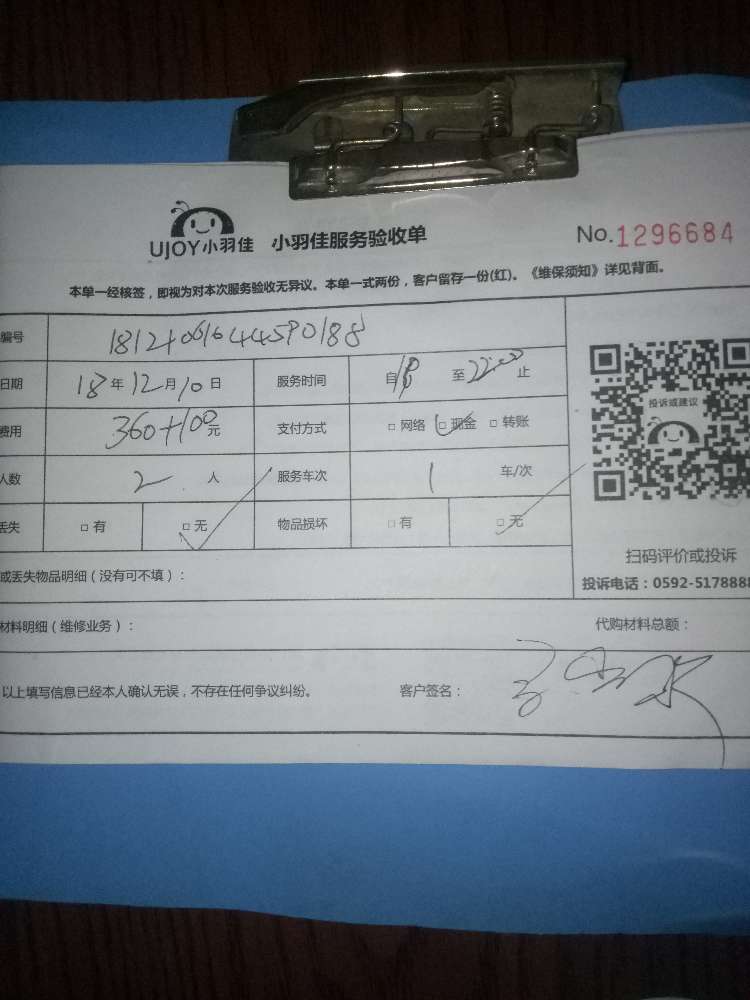 UJOY小羽佳 小羽佳服务验收单 No.1296684
本单一经核签，即视为对本次服务验收无异议。本单一式两份，客户留存一份(红)。《维保须知》详见背面。
编号
日期 18年12月10日 服务时间 自 至22:00止
费用 360+100元 支付方式 □ 网络 □ 现金 □ 转账
人数 2 人 服务车次 1 车/次
丢失 □ 有 □ 无 物品损坏 □ 有 □ 无
投诉或建议
扫码评价或投诉
投诉电话：0592-5178888
或丢失物品明细（没有可不填）：
材料明细（维修业务）： 代购材料总额：
以上填写信息已经本人确认无误，不存在任何争议纠纷。 客户签名：